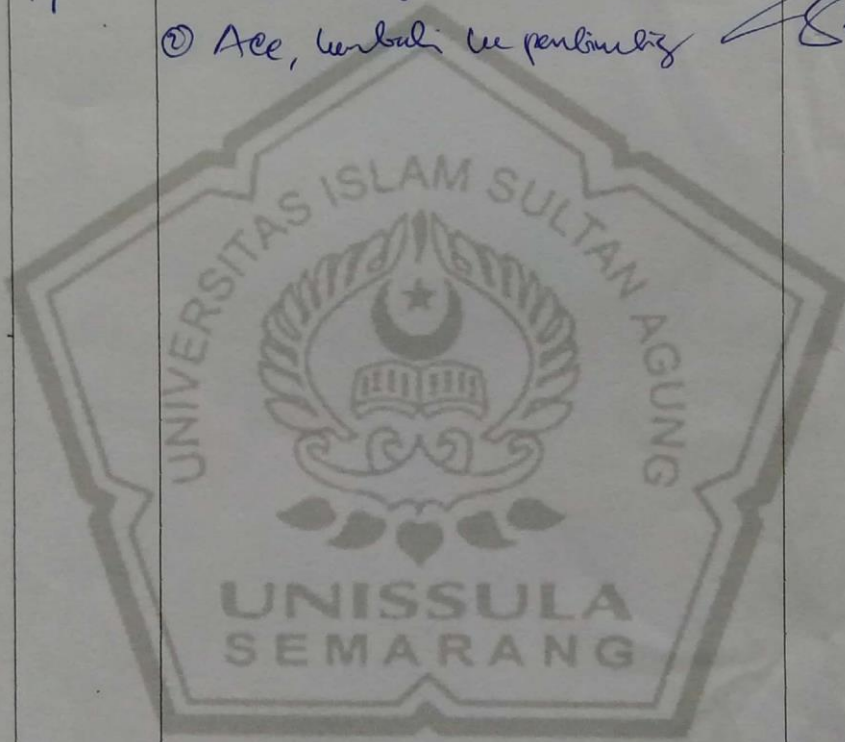 ② Acc, kembali ke pembimbing
UNIVERSITAS ISLAM SULTAN AGUNG
UNISSULA
SEMARANG